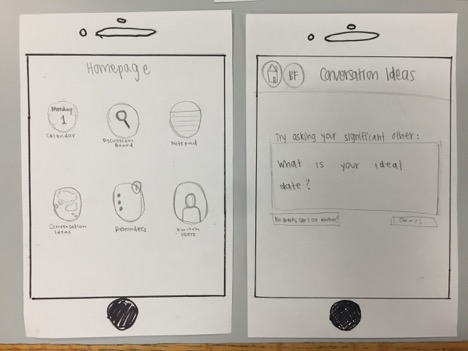 Homepage
Monday
1
Calendar
Discussion
Board
Notepad
Conversation
Ideas
Reminders
Switch
Users
BF
Conversation Ideas
Try asking your significant other:
What is your ideal
date?
No thanks, can I see another?